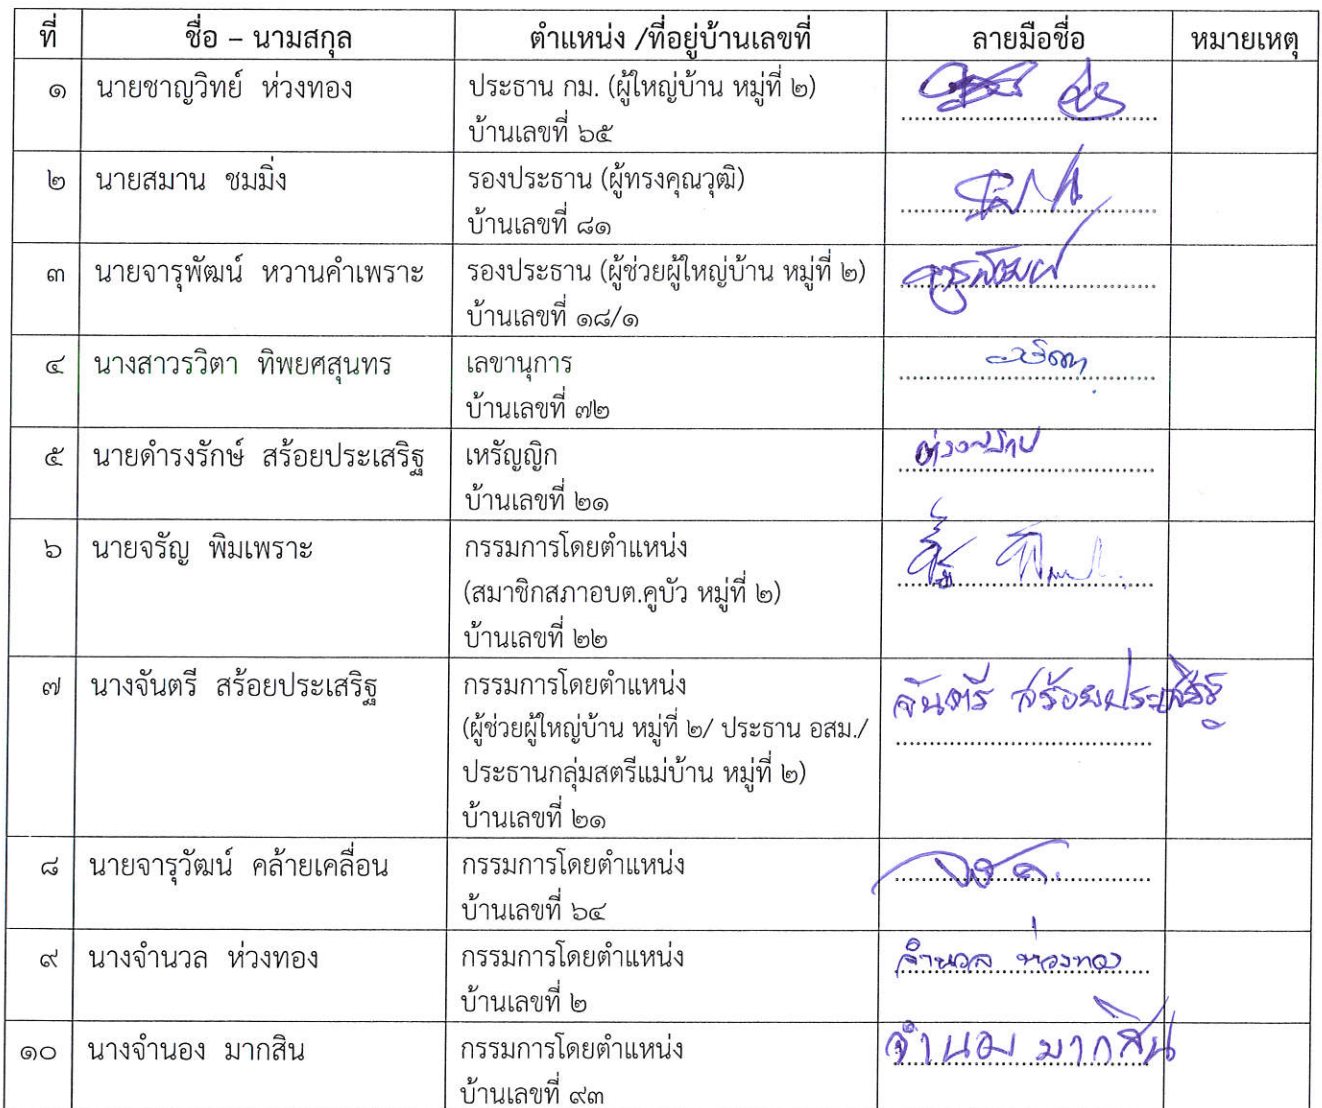 ที่ ชื่อ – นามสกุล ตำแหน่ง /ที่อยู่บ้านเลขที่ ลายมือชื่อ หมายเหตุ
๑ นายชาญวิทย์ ห่วงทอง ประธาน กม. (ผู้ใหญ่บ้าน หมู่ที่ ๒)
บ้านเลขที่ ๖๕
๒ นายสมาน ชมมิ่ง รองประธาน (ผู้ทรงคุณวุฒิ)
บ้านเลขที่ ๘๑
๓ นายจารุพัฒน์ หวานคำเพราะ รองประธาน (ผู้ช่วยผู้ใหญ่บ้าน หมู่ที่ ๒) จารุพัฒน์
บ้านเลขที่ ๑๘/๑
๔ นางสาวรวิตา ทิพยศสุนทร เลขานุการ
บ้านเลขที่ ๗๒
๕ นายดำรงรักษ์ สร้อยประเสริฐ เหรัญญิก
บ้านเลขที่ ๒๑
๖ นายจรัญ พิมเพราะ กรรมการโดยตำแหน่ง
(สมาชิกสภาอบต.คูบัว หมู่ที่ ๒)
บ้านเลขที่ ๒๒
๗ นางจันตรี สร้อยประเสริฐ กรรมการโดยตำแหน่ง จันตรี สร้อยประเสริฐ
(ผู้ช่วยผู้ใหญ่บ้าน หมู่ที่ ๒/ ประธาน อสม./
ประธานกลุ่มสตรีแม่บ้าน หมู่ที่ ๒)
บ้านเลขที่ ๒๑
๘ นายจารุวัฒน์ คล้ายเคลื่อน กรรมการโดยตำแหน่ง
บ้านเลขที่ ๖๔
๙ นางจำนวล ห่วงทอง กรรมการโดยตำแหน่ง จำนวล ห่วงทอง
บ้านเลขที่ ๒
๑๐ นางจำนอง มากสิน กรรมการโดยตำแหน่ง จำนอง มากสิน
บ้านเลขที่ ๙๓